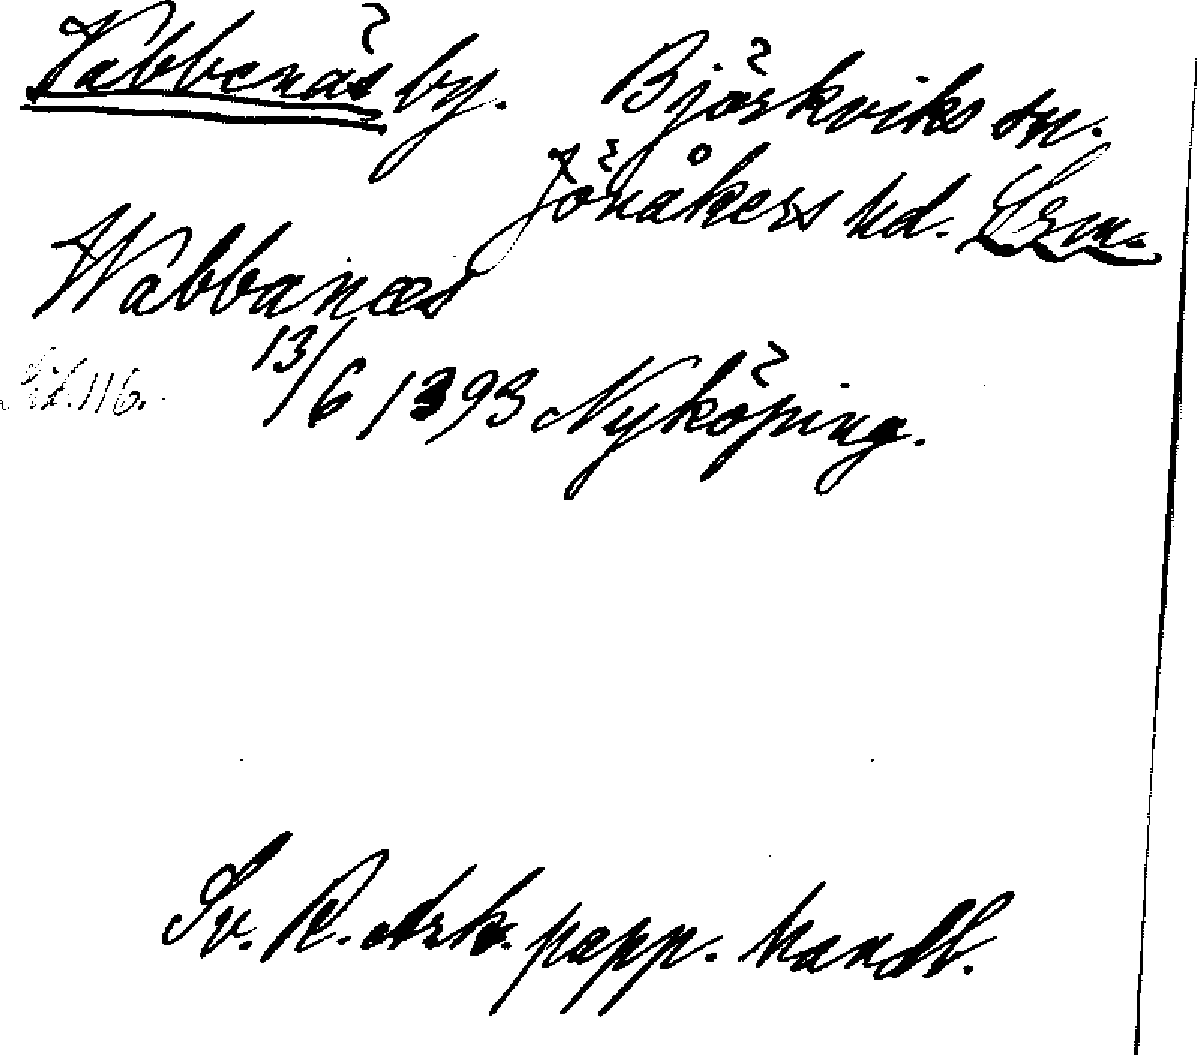 Vabbenäs by. Björkviks sn.
Jönåkers hd. Srm.
Wabbanæs
13/6 1393 Nyköping.
116.
Sv. R. Ark. papp. handl.